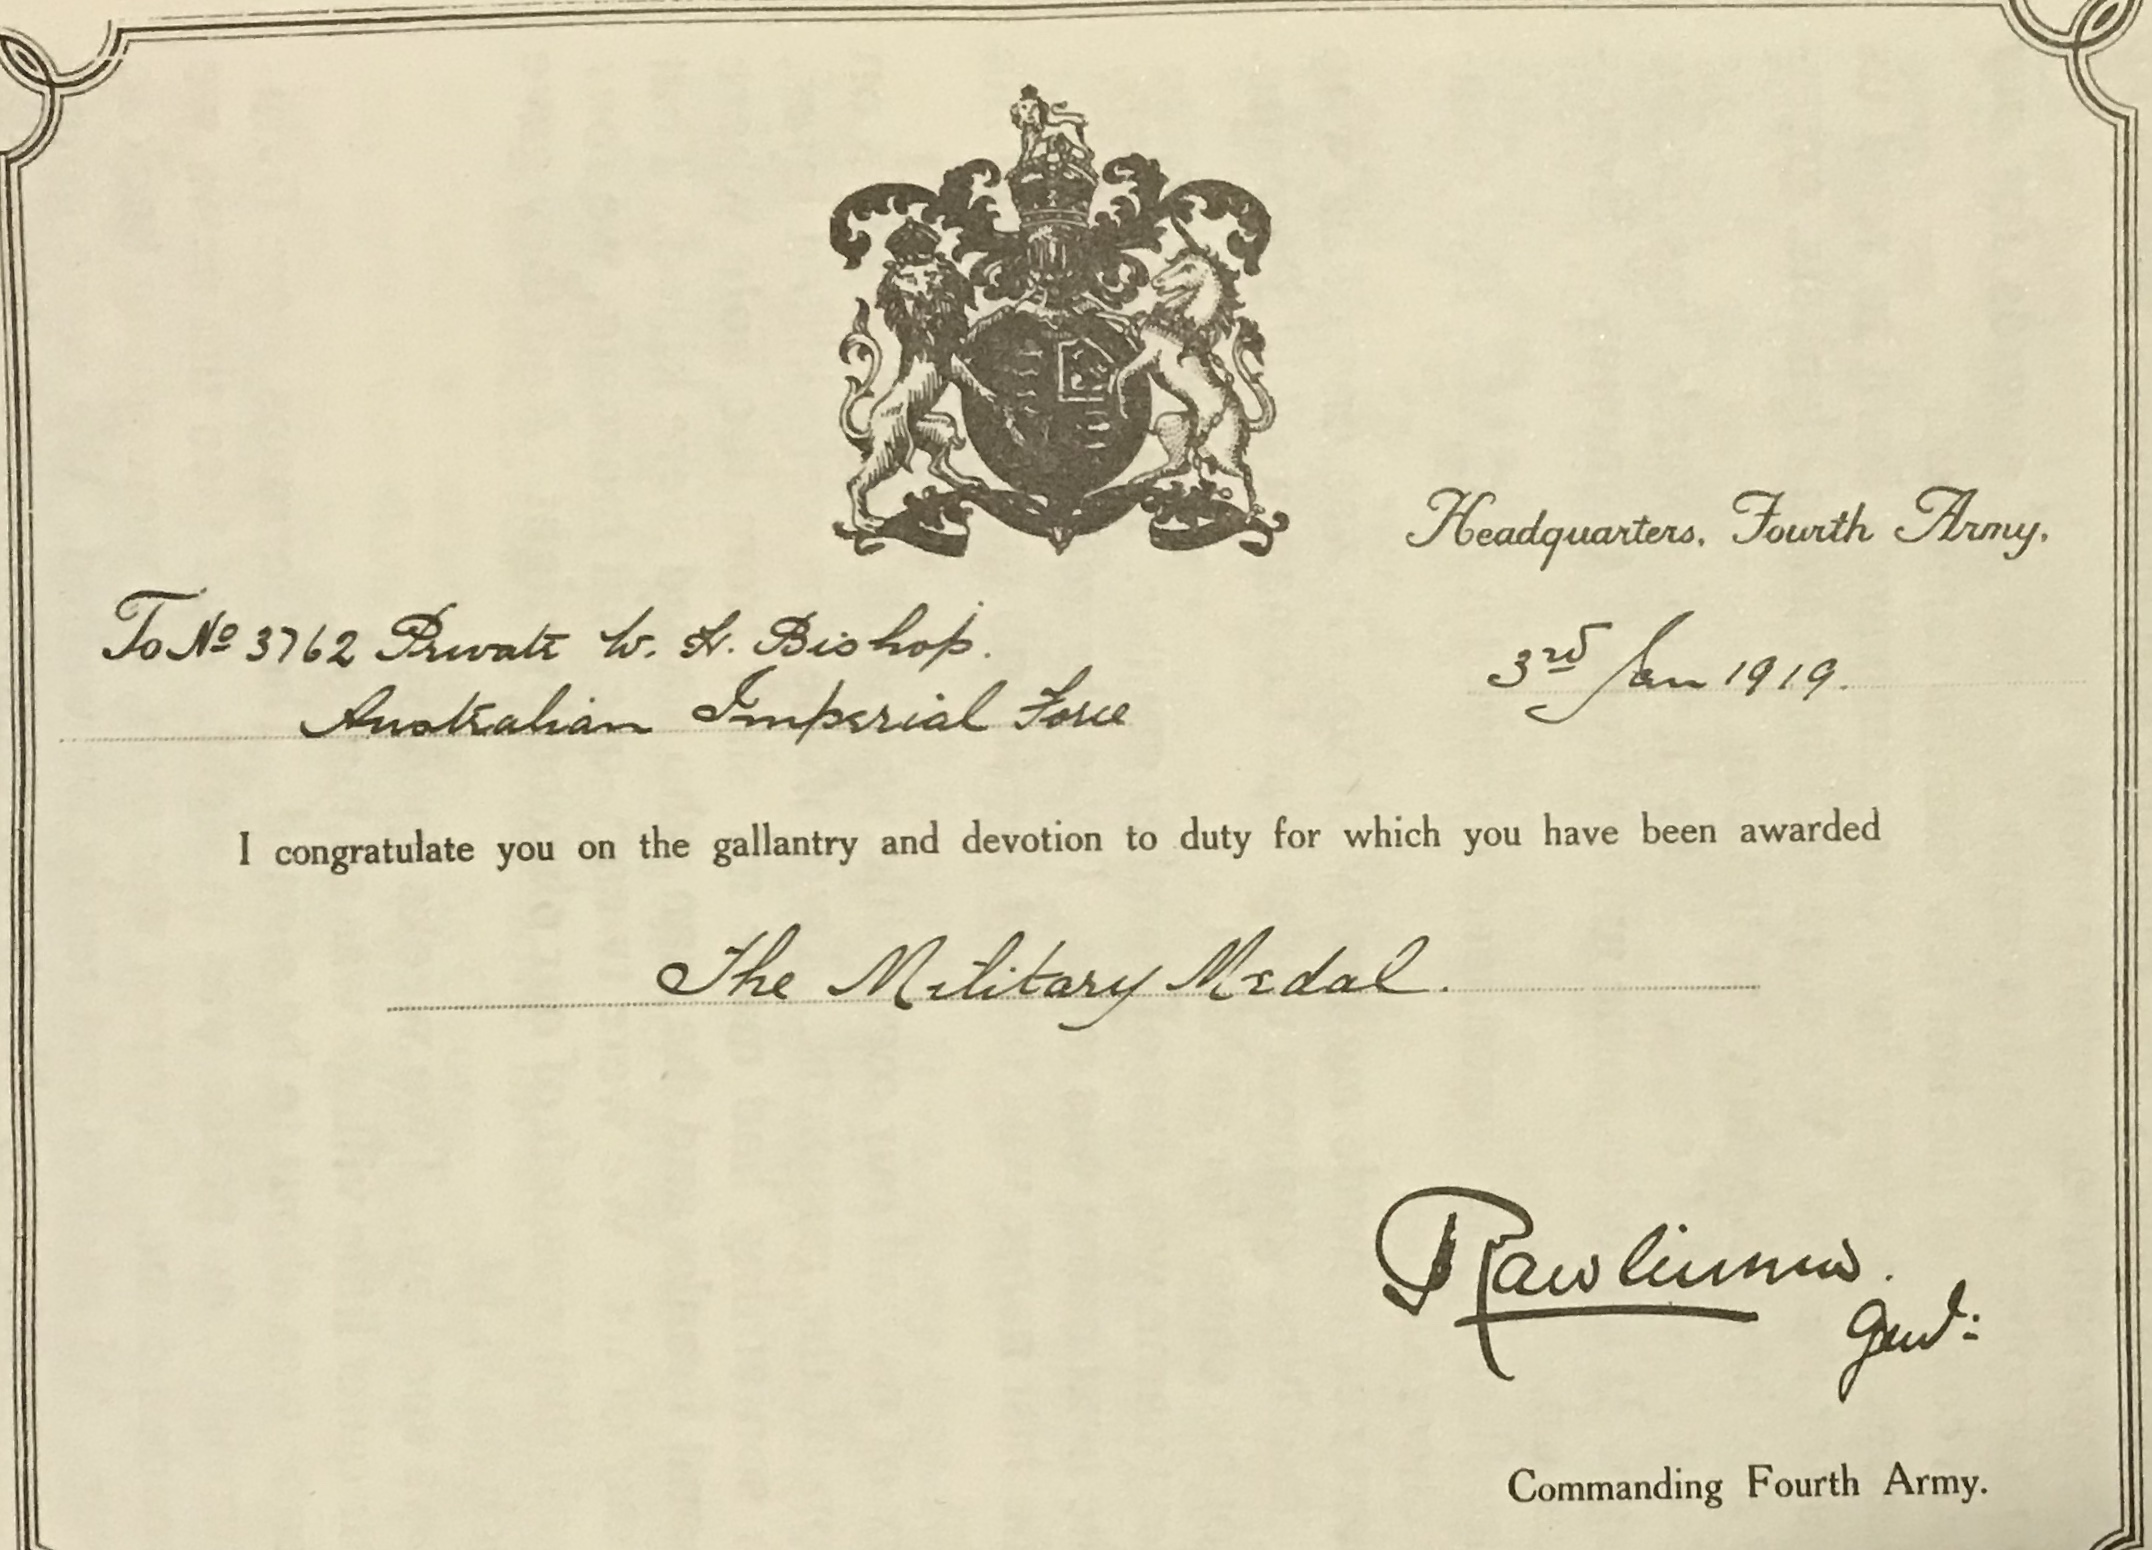 Headquarters, Fourth Army.
To No 3762 Private W. H. Bishop.
Australian Imperial Force
3rd Jan 1919.
I congratulate you on the gallantry and devotion to duty for which you have been awarded
The Military Medal.
Rawlinson.
Genl:
Commanding Fourth Army.